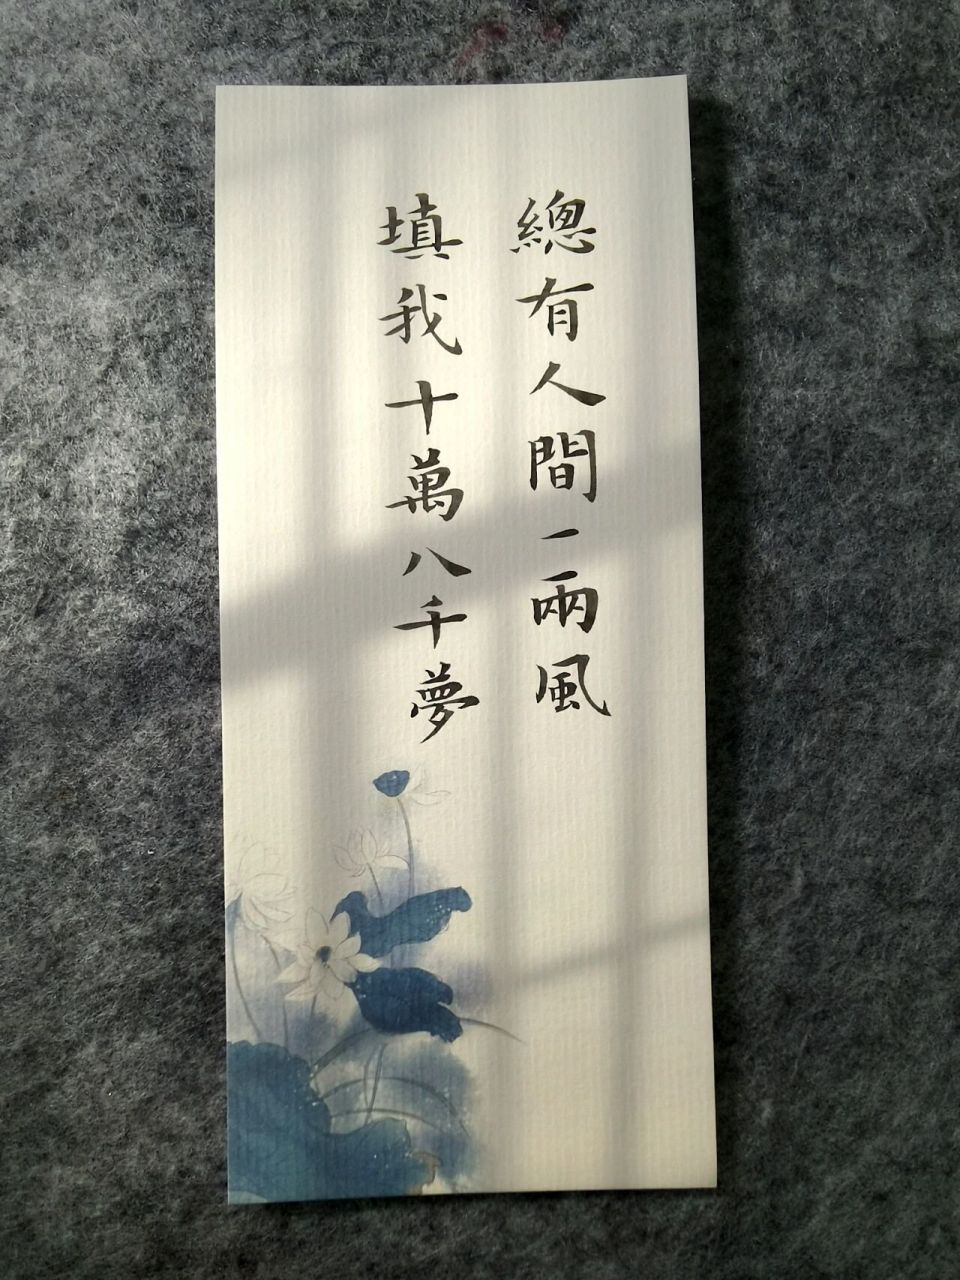 總有人間一兩風
填我十萬八千夢